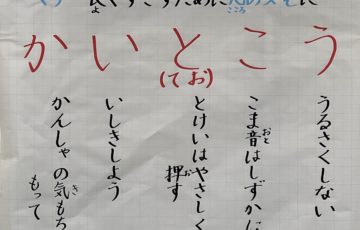 くすごすために
かいとこう
(てお)
うるさくしない
こま音はしずかに
とけいはやさしく押す
いしきしよう
かんしゃの気もちもって